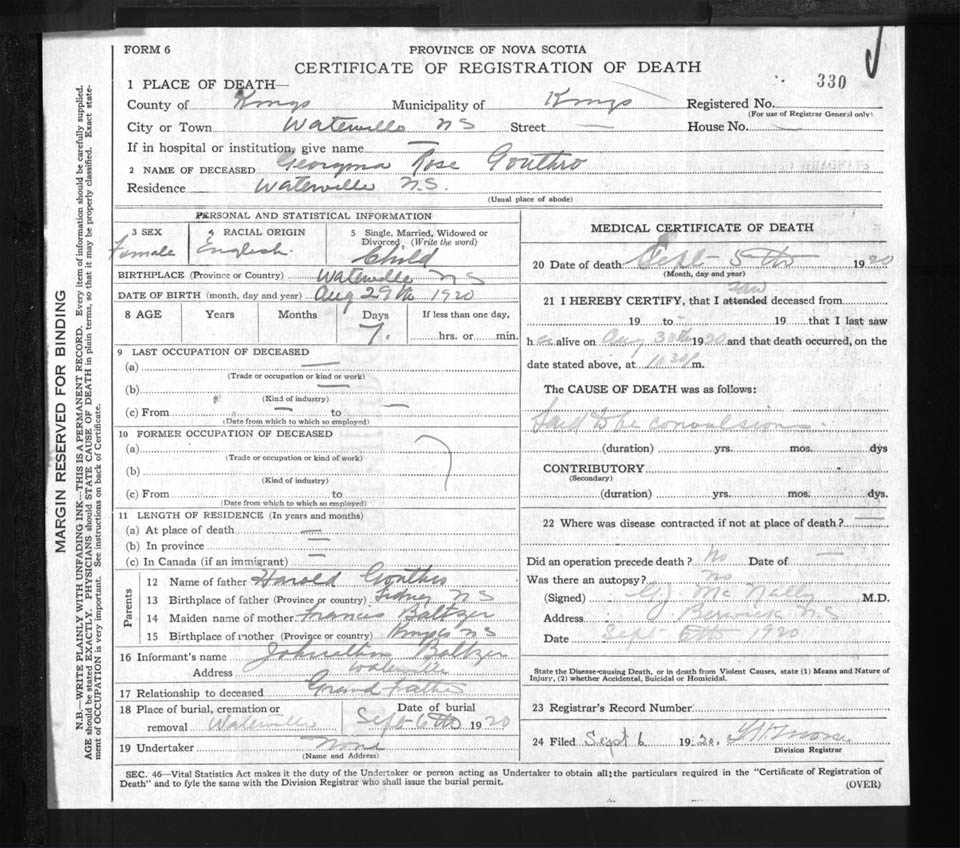 FORM 6
PROVINCE OF NOVA SCOTIA
CERTIFICATE OF REGISTRATION OF DEATH
330
1 PLACE OF DEATH—
County of Kings Municipality of Kings Registered No.
(For use of Registrar General only)
City or Town Waterville NS Street — House No. —
If in hospital or institution, give name —
2 NAME OF DECEASED Rose Gouthro
Residence Waterville N.S.
(Usual place of abode)
PERSONAL AND STATISTICAL INFORMATION
3 SEX
Female
4 RACIAL ORIGIN
English.
5 Single, Married, Widowed or Divorced (Write the word)
Child
BIRTHPLACE (Province or Country) Waterville NS
DATE OF BIRTH (month, day and year) Aug 29th 1920
8 AGE Years Months Days If less than one day,
7. hrs. or min.
9 LAST OCCUPATION OF DECEASED
(a) —
(Trade or occupation or kind or work)
(b) —
(Kind of industry)
(c) From — to —
(Date from which to which so employed)
10 FORMER OCCUPATION OF DECEASED
(a)
(Trade or occupation or kind of work)
(b)
(Kind of industry)
(c) From to
(Date from which to which so employed)
11 LENGTH OF RESIDENCE (In years and months)
(a) At place of death —
(b) In province —
(c) In Canada (if an immigrant) —
Parents
12 Name of father Harold Gouthro
13 Birthplace of father (Province or country) Sidney NS
14 Maiden name of mother Francis Baltzer
15 Birthplace of mother (Province or country) Kings NS
16 Informant's name Baltzer
Address Waterville
17 Relationship to deceased Grand father
18 Place of burial, cremation or removal Waterville
Date of burial
Sept 6th 1920
19 Undertaker None
(Name and Address)
MEDICAL CERTIFICATE OF DEATH
20 Date of death Sept 5th 1920
(Month, day and year)
21 I HEREBY CERTIFY, that I attended saw deceased from
19 to — 19 that I last saw
h alive on Aug 30th 1920 and that death occurred, on the
date stated above, at m.
The CAUSE OF DEATH was as follows:
Said to be convulsions.
(duration) yrs. mos. dys
CONTRIBUTORY
(Secondary)
(duration) yrs. mos. dys.
22 Where was disease contracted if not at place of death? —
Did an operation precede death? No Date of —
Was there an autopsy? No
(Signed) McNally M.D.
Address Berwick N.S
Date Sept 6th 1920
State the Disease-causing Death, or in death from Violent Causes, state (1) Means and Nature of
Injury, (2) whether Accidental, Suicidal or Homicidal.
23 Registrar's Record Number
24 Filed Sept 6 1920.
Division Registrar
SEC. 46—Vital Statistics Act makes it the duty of the Undertaker or person acting as Undertaker to obtain all the particulars required in the "Certificate of Registration of
Death" and to fyle the same with the Division Registrar who shall issue the burial permit.
(OVER)
MARGIN RESERVED FOR BINDING
N.B.—WRITE PLAINLY WITH UNFADING INK—THIS IS A PERMANENT RECORD. Every item of information should be carefully supplied.
AGE should be stated EXACTLY. PHYSICIANS should STATE CAUSE OF DEATH in plain terms, so that it may be properly classified. Exact state-
ment of OCCUPATION is very important. See instructions on back of Certificate.